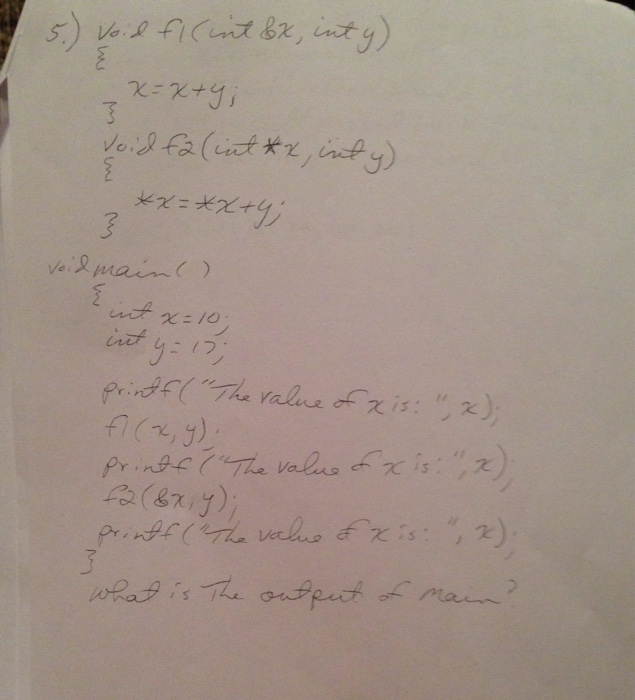 5.) void f1(int &x, int y)
{
x=x+y;
}
void f2(int *x, int y)
{
*x=*x+y;
}
void main()
{
int x=10;
int y=17;
printf("The value of x is: ", x);
f1(x,y);
printf("The value of x is: ", x);
f2(&x,y);
printf("The value of x is: ", x);
}
what is The output of main?